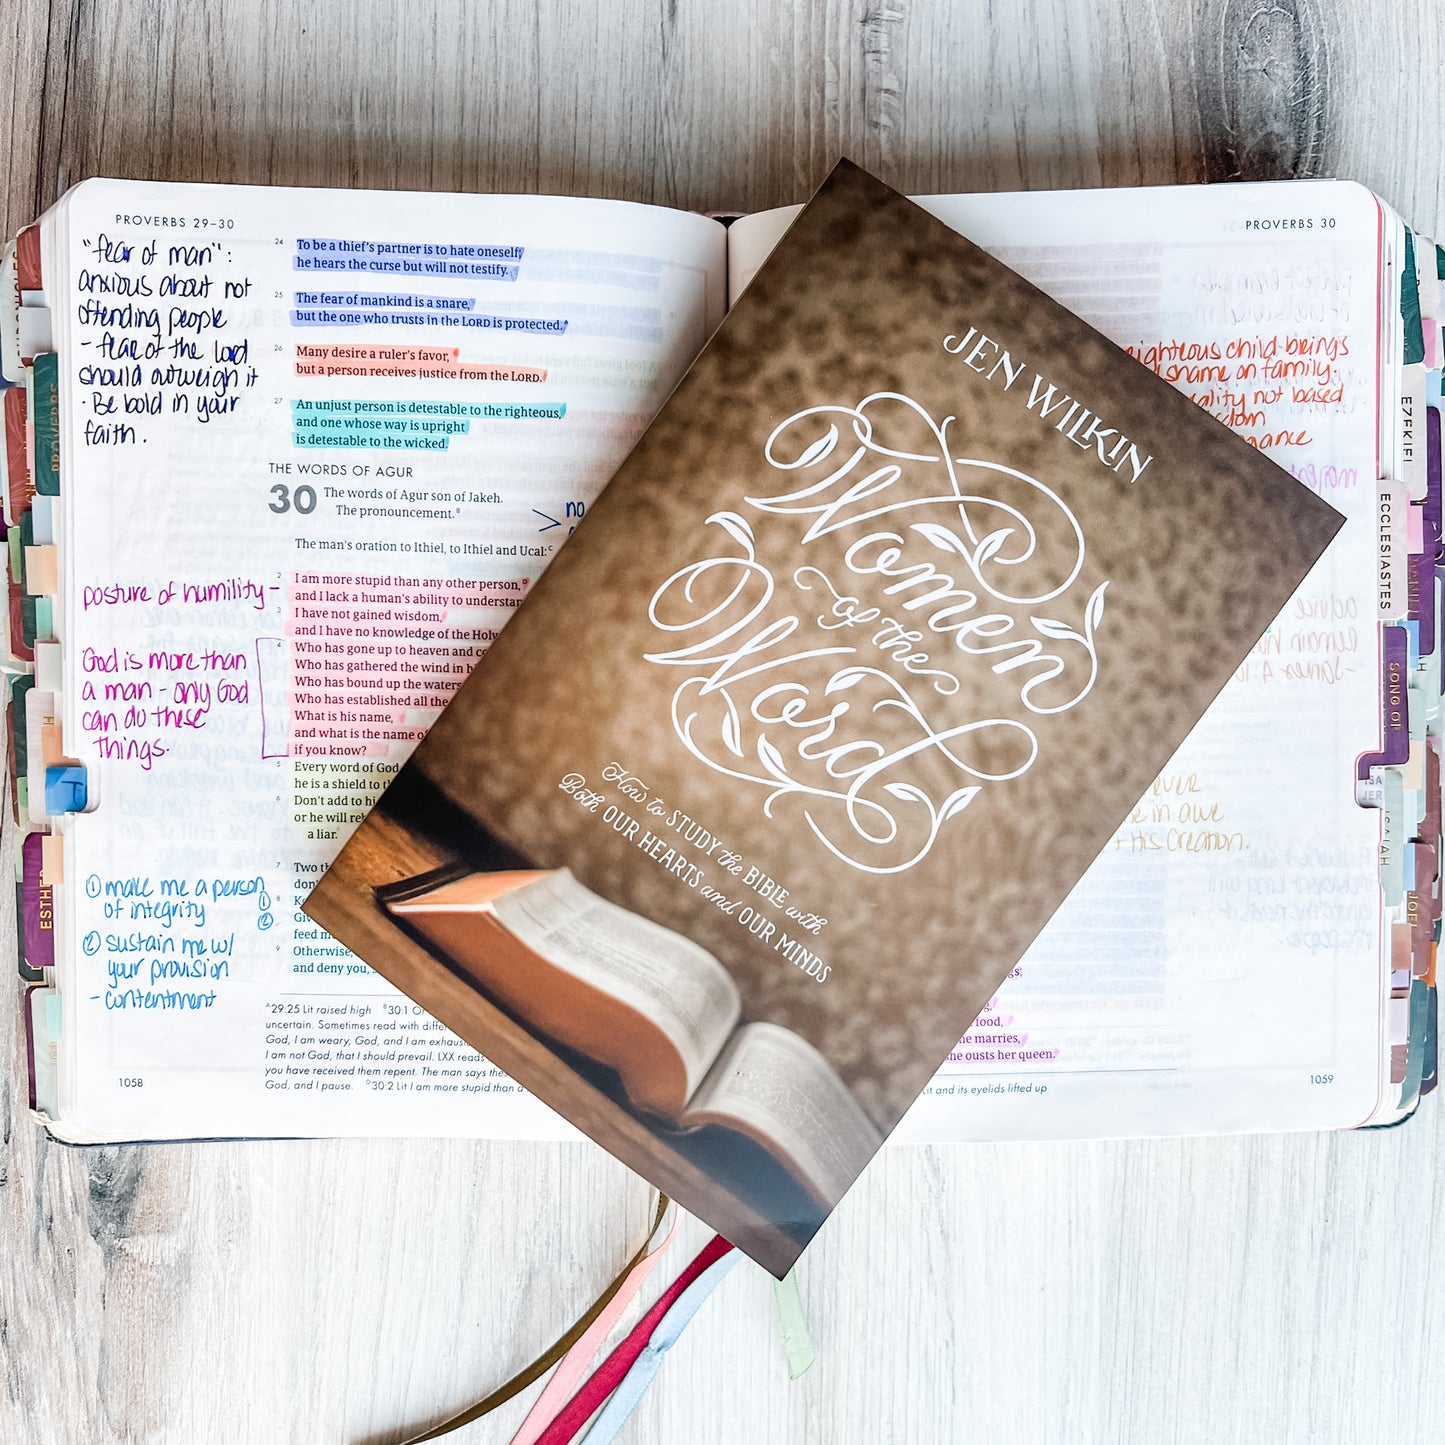 PROVERBS 29–30
"fear of man":
anxious about not
offending people
- fear of the Lord
should outweigh it
· Be bold in your
faith.
posture of humility –
God is more than
a man - only God
can do these
things.
① make me a person
of integrity
② sustain me w/
your provision
- contentment
24 To be a thief's partner is to hate oneself;
he hears the curse but will not testify.
25 The fear of mankind is a snare,
but the one who trusts in the LORD is protected.A
26 Many desire a ruler's favor,
but a person receives justice from the LORD.
27 An unjust person is detestable to the righteous,
and one whose way is upright
is detestable to the wicked.
THE WORDS OF AGUR
30 The words of Agur son of Jakeh.
The pronouncement.B
no
The man's oration to Ithiel, to Ithiel and Ucal:C
2 I am more stupid than any other person,D
and I lack a human's ability to understan
3 I have not gained wisdom,
and I have no knowledge of the Holy
4 Who has gone up to heaven and co
Who has gathered the wind in h
Who has bound up the waters
Who has established all the
What is his name,
and what is the name of
if you know?
5 Every word of God
he is a shield to th
6 Don't add to hi
or he will reb
a liar.
7 Two th
don'
8 Ke
①
②
Giv
feed m
9 Otherwise,
and deny you, s
A29:25 Lit raised high B30:1 Or
uncertain. Sometimes read with differ
God, I am weary, God, and I am exhaus
I am not God, that I should prevail. LXX reads
you have received them repent. The man says the
God, and I pause. D30:2 Lit I am more stupid than a
1058
JEN WILKIN
Women
of the
Word
How to STUDY the BIBLE with
Both OUR HEARTS and OUR MINDS
PROVERBS 30
righteous child brings
shame on family.
ality not based
sdom
gance
ever
e in awe
+ His Creation.
gs:
g,
food,
he marries,
he ousts her queen.
Lit and its eyelids lifted up
1059
PROVERBS
ESTHER
EZEKIEL
ECCLESIASTES
SONG OF
ISA
JER
ISAIAH
JOEL